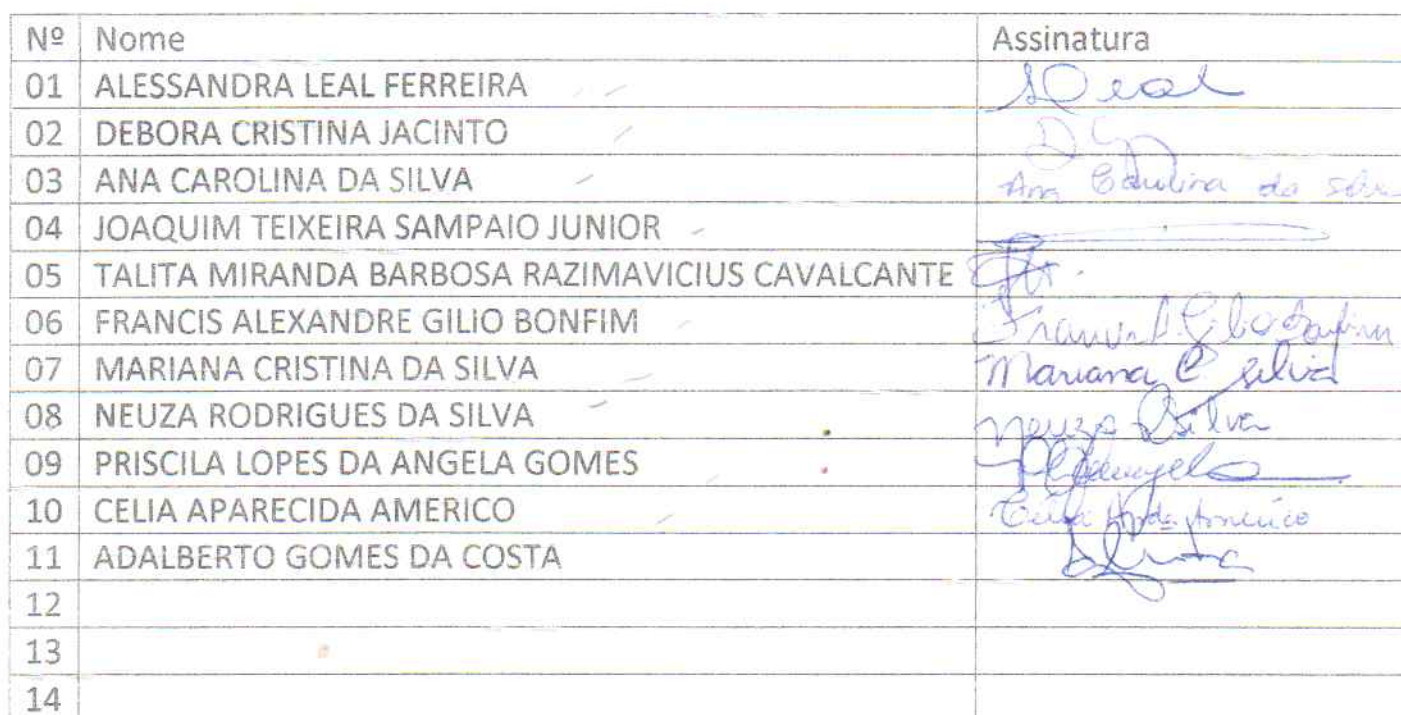 Nº Nome Assinatura
01 ALESSANDRA LEAL FERREIRA Leal
02 DEBORA CRISTINA JACINTO
03 ANA CAROLINA DA SILVA Ana Carolina da Silva
04 JOAQUIM TEIXEIRA SAMPAIO JUNIOR
05 TALITA MIRANDA BARBOSA RAZIMAVICIUS CAVALCANTE
06 FRANCIS ALEXANDRE GILIO BONFIM Francis A. Gilio Bonfim
07 MARIANA CRISTINA DA SILVA Mariana C Silva
08 NEUZA RODRIGUES DA SILVA Neuza Silva
09 PRISCILA LOPES DA ANGELA GOMES
10 CELIA APARECIDA AMERICO Célia Apda Américo
11 ADALBERTO GOMES DA COSTA
12
13
14